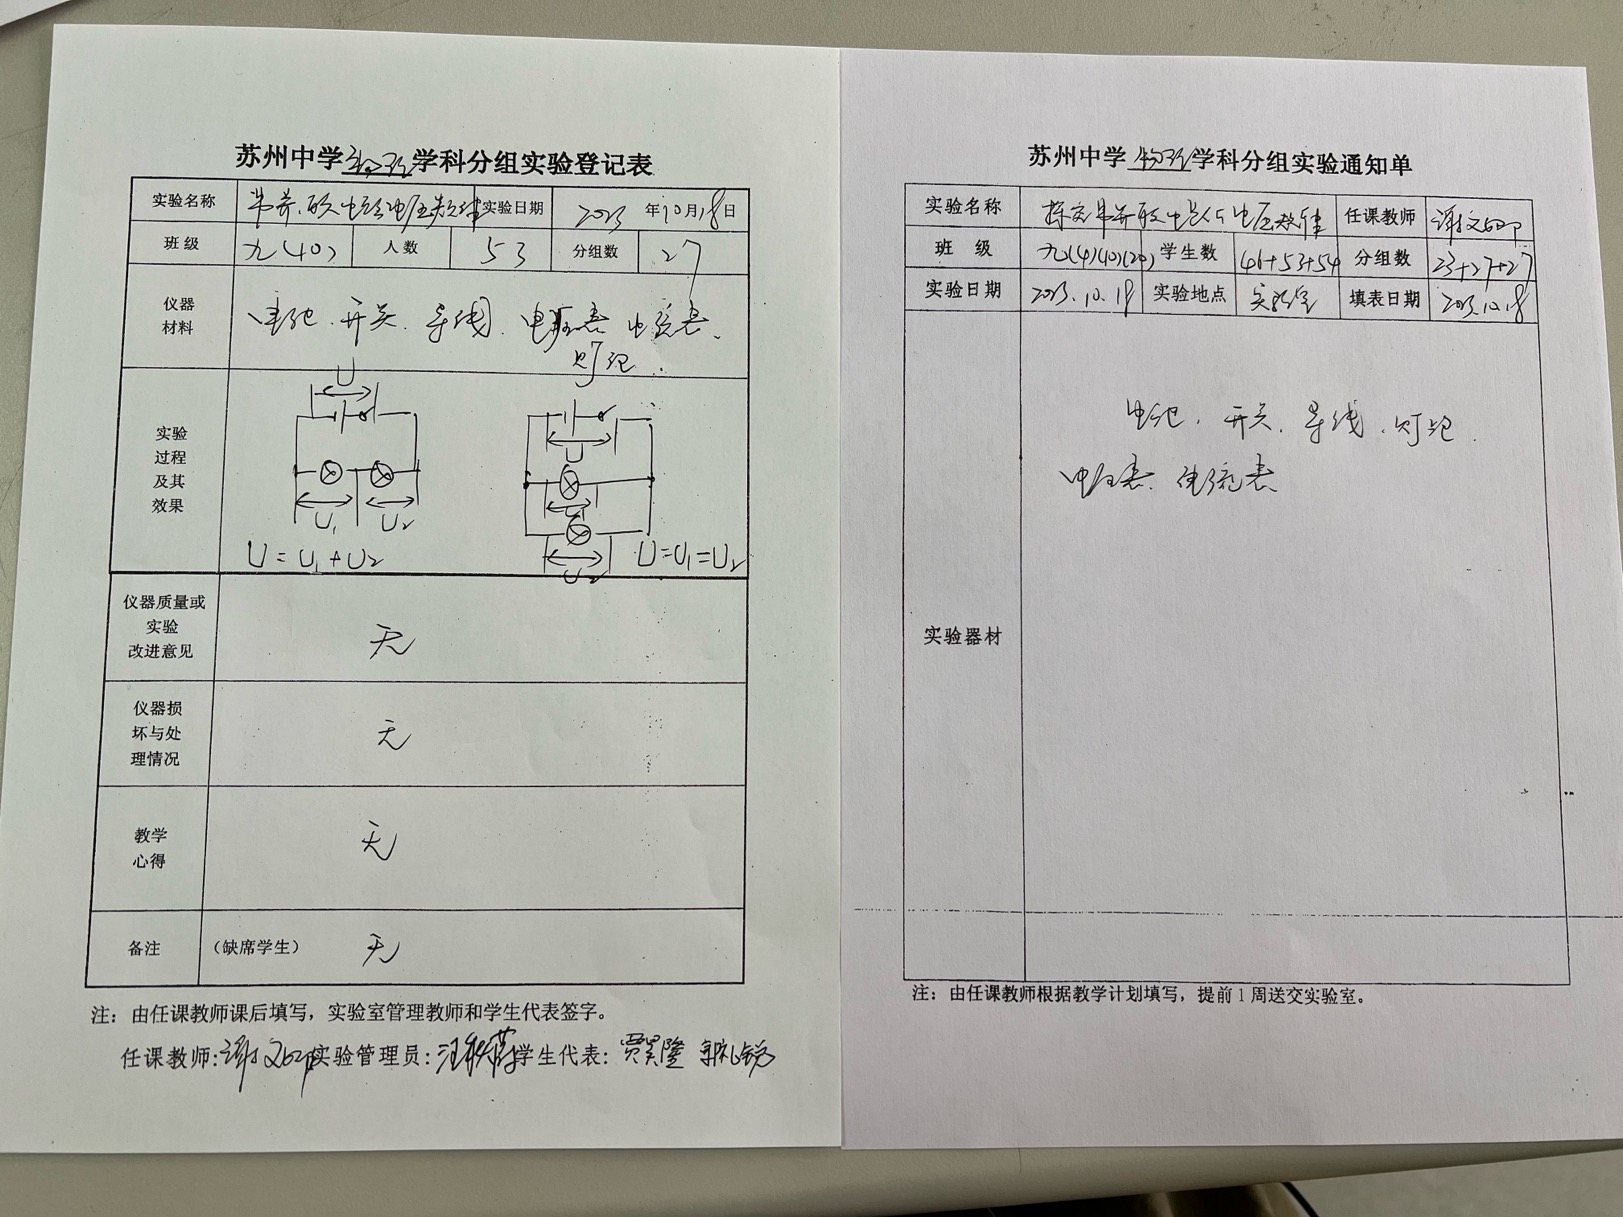 苏州中学物理学科分组实验登记表
实验名称 串并联电路电压规律 实验日期 2023年10月18日
班级 九(10) 人数 53 分组数 27
仪器
材料
电池、开关、导线、电压表、电流表、
灯泡.
实验
过程
及其
效果
U
U
U₁ U₂
U₁
U₂
U=U₁+U₂
U=U₁=U₂
仪器质量或
实验
改进意见
无
仪器损
坏与处
理情况
无
教学
心得
无
备注 (缺席学生) 无
注：由任课教师课后填写，实验室管理教师和学生代表签字。
任课教师: 实验管理员: 学生代表:
苏州中学物理学科分组实验通知单
实验名称 探究串并联电路电压规律 任课教师
班级 九(4)(10)(20) 学生数 46+53+54 分组数 23+27+27
实验日期 2023.10.18 实验地点 实验室 填表日期 2023.10.18
实验器材
电池、开关、导线、灯泡.
电压表、电流表
注：由任课教师根据教学计划填写，提前1周送交实验室。